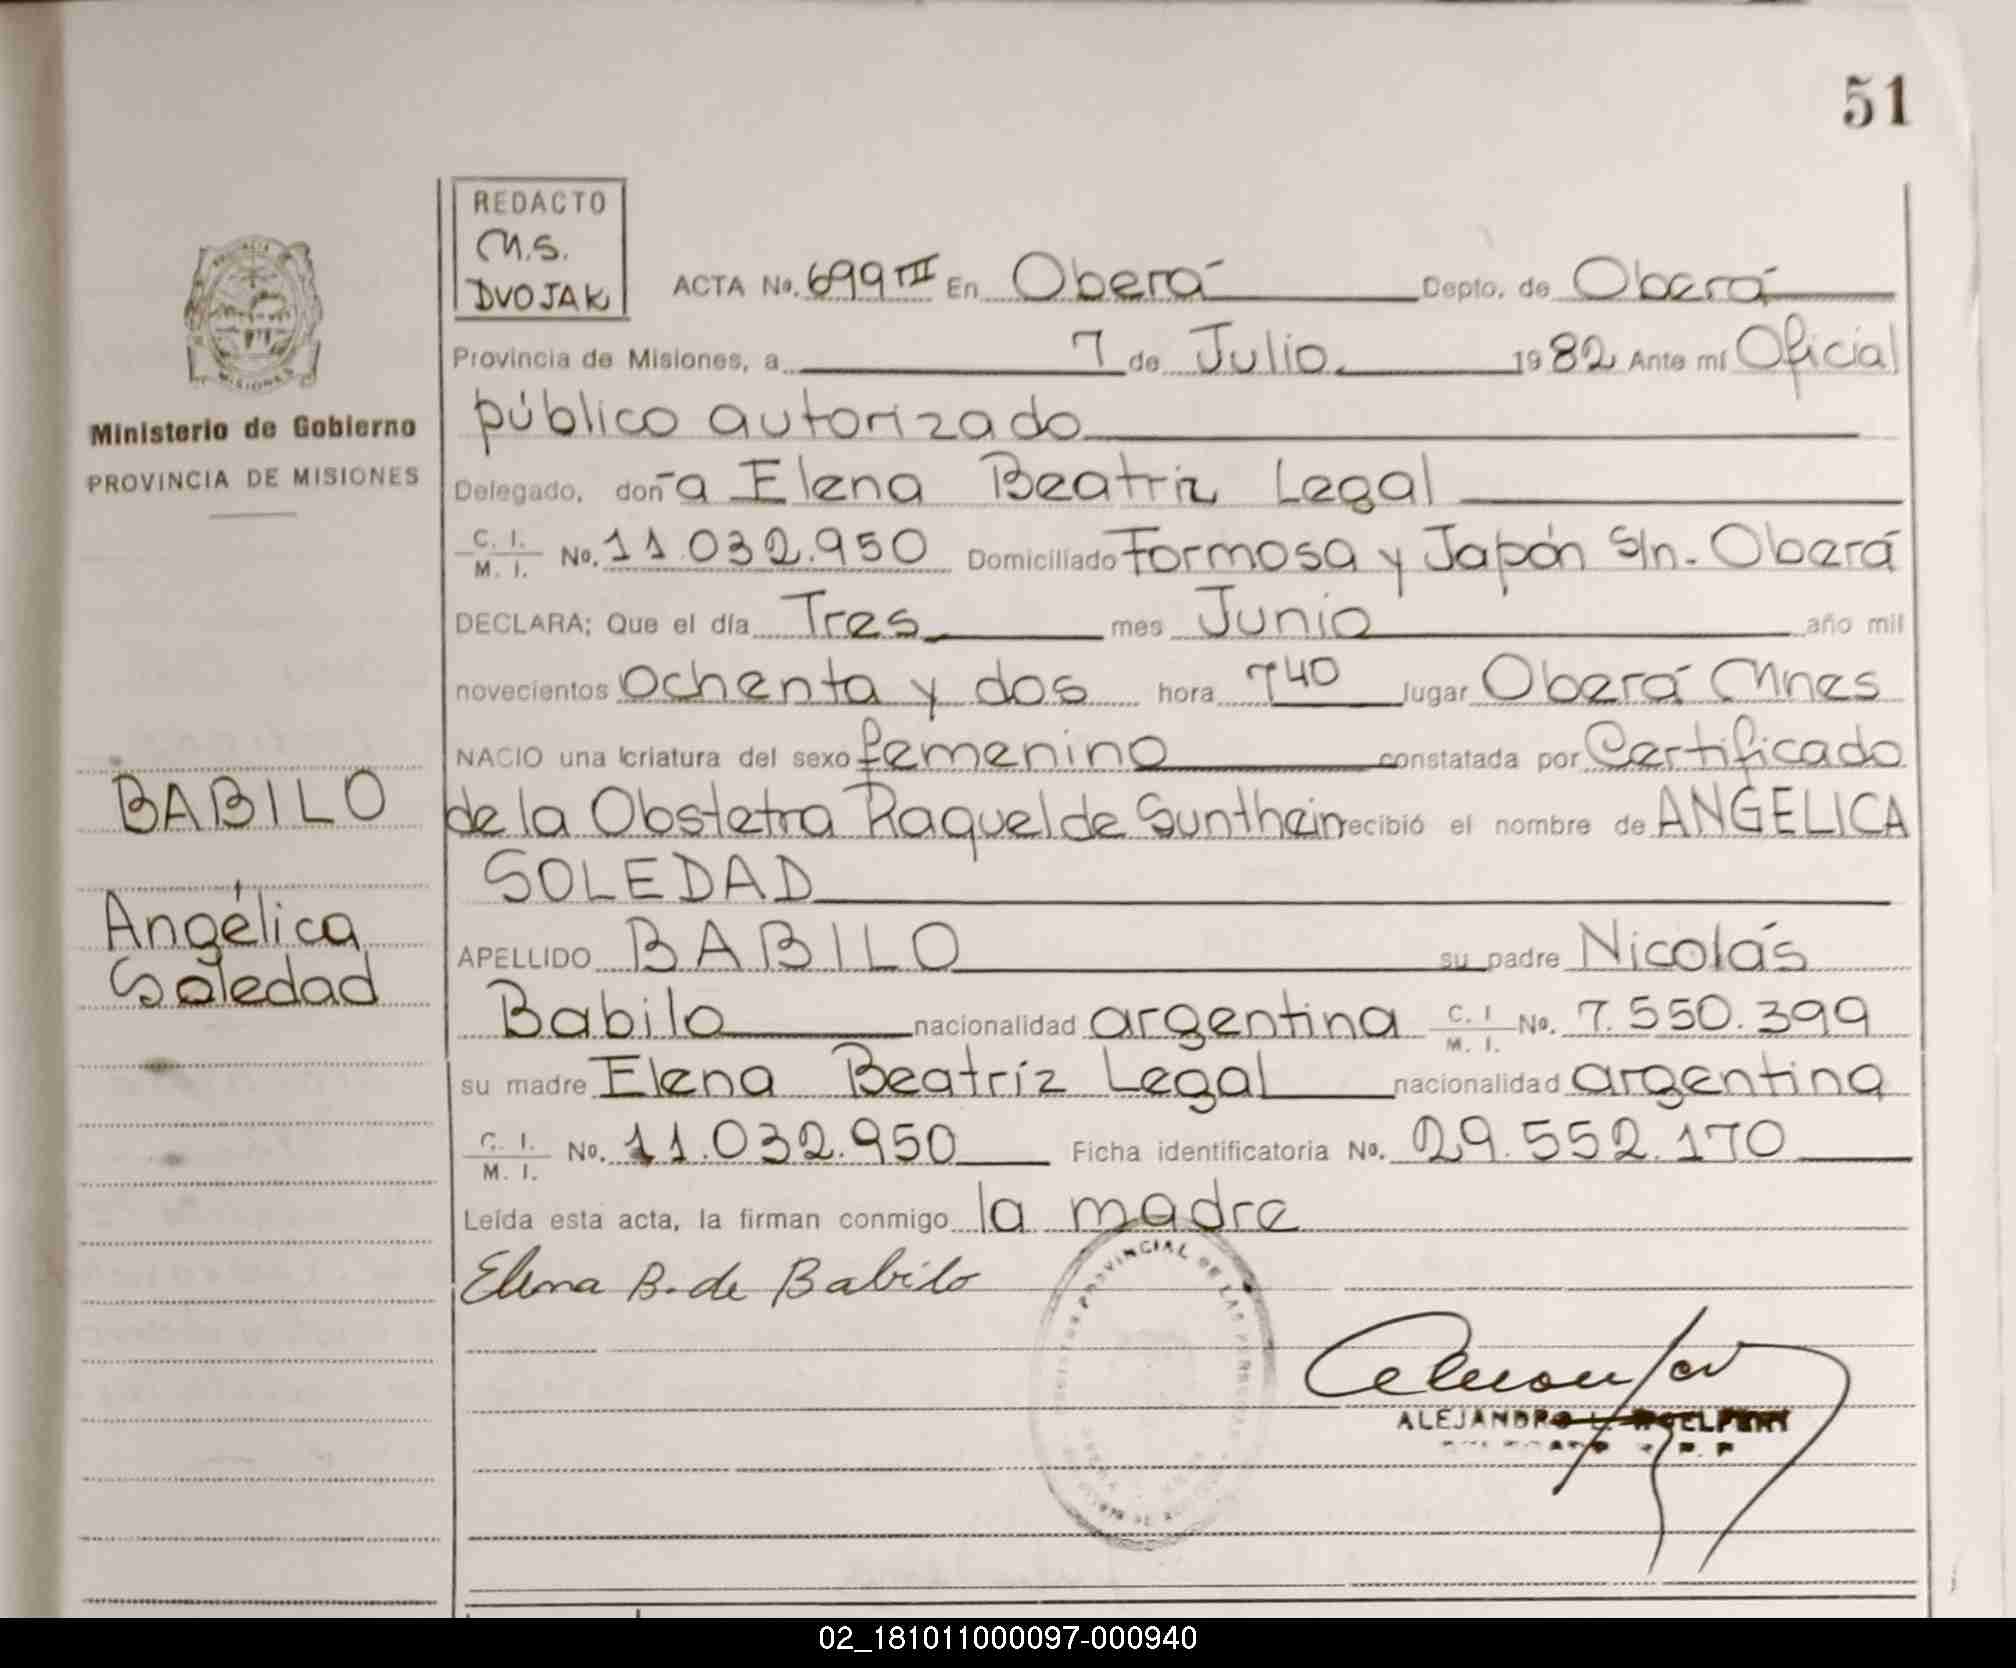 51
REDACTO
M.S.
DVOJAK
ACTA No. 699 TII En Oberá Depto. de Oberá
Provincia de Misiones, a 7 de Julio 1982 Ante mí Oficial
público autorizado
Delegado, doña Elena Beatriz Legal
C. I. M. I. No. 11.032.950 Domiciliado Formosa y Japón S/n. Oberá
DECLARA; Que el día Tres mes Junio año mil
novecientos ochenta y dos hora 740 lugar Oberá Mnes
NACIO una criatura del sexo femenino constatada por Certificado
de la Obstetra Raquel de Sunthein recibió el nombre de ANGELICA
SOLEDAD
APELLIDO BABILO su padre Nicolás
Babilo nacionalidad argentina C. I M. I. No. 7.550.399
su madre Elena Beatríz Legal nacionalidad argentina
C. I. M. I. No. 11.032.950 Ficha identificatoria No. 29.552.170
Leída esta acta, la firman conmigo la madre
Elena B. de Babilo
PROVINCIAL DE LAS PERSONAS
ALEJANDRO L.
Ministerio de Gobierno
PROVINCIA DE MISIONES
MISIONES
BABILO
Angélica
Soledad
02_181011000097-000940